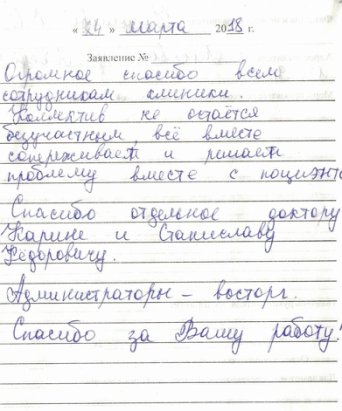 « 24 » марта 2018 г.
Заявление №
Огромное спасибо всем
сотрудникам клиники.
Коллектив не остаётся
безучастным, всё вместе
сопереживает и решает
проблему вместе с поциэнто
Спасибо отдельное доктору
Карине и Станиславу
Фёдоровичу.
Администраторы – восторг.
Спасибо за Вашу работу!